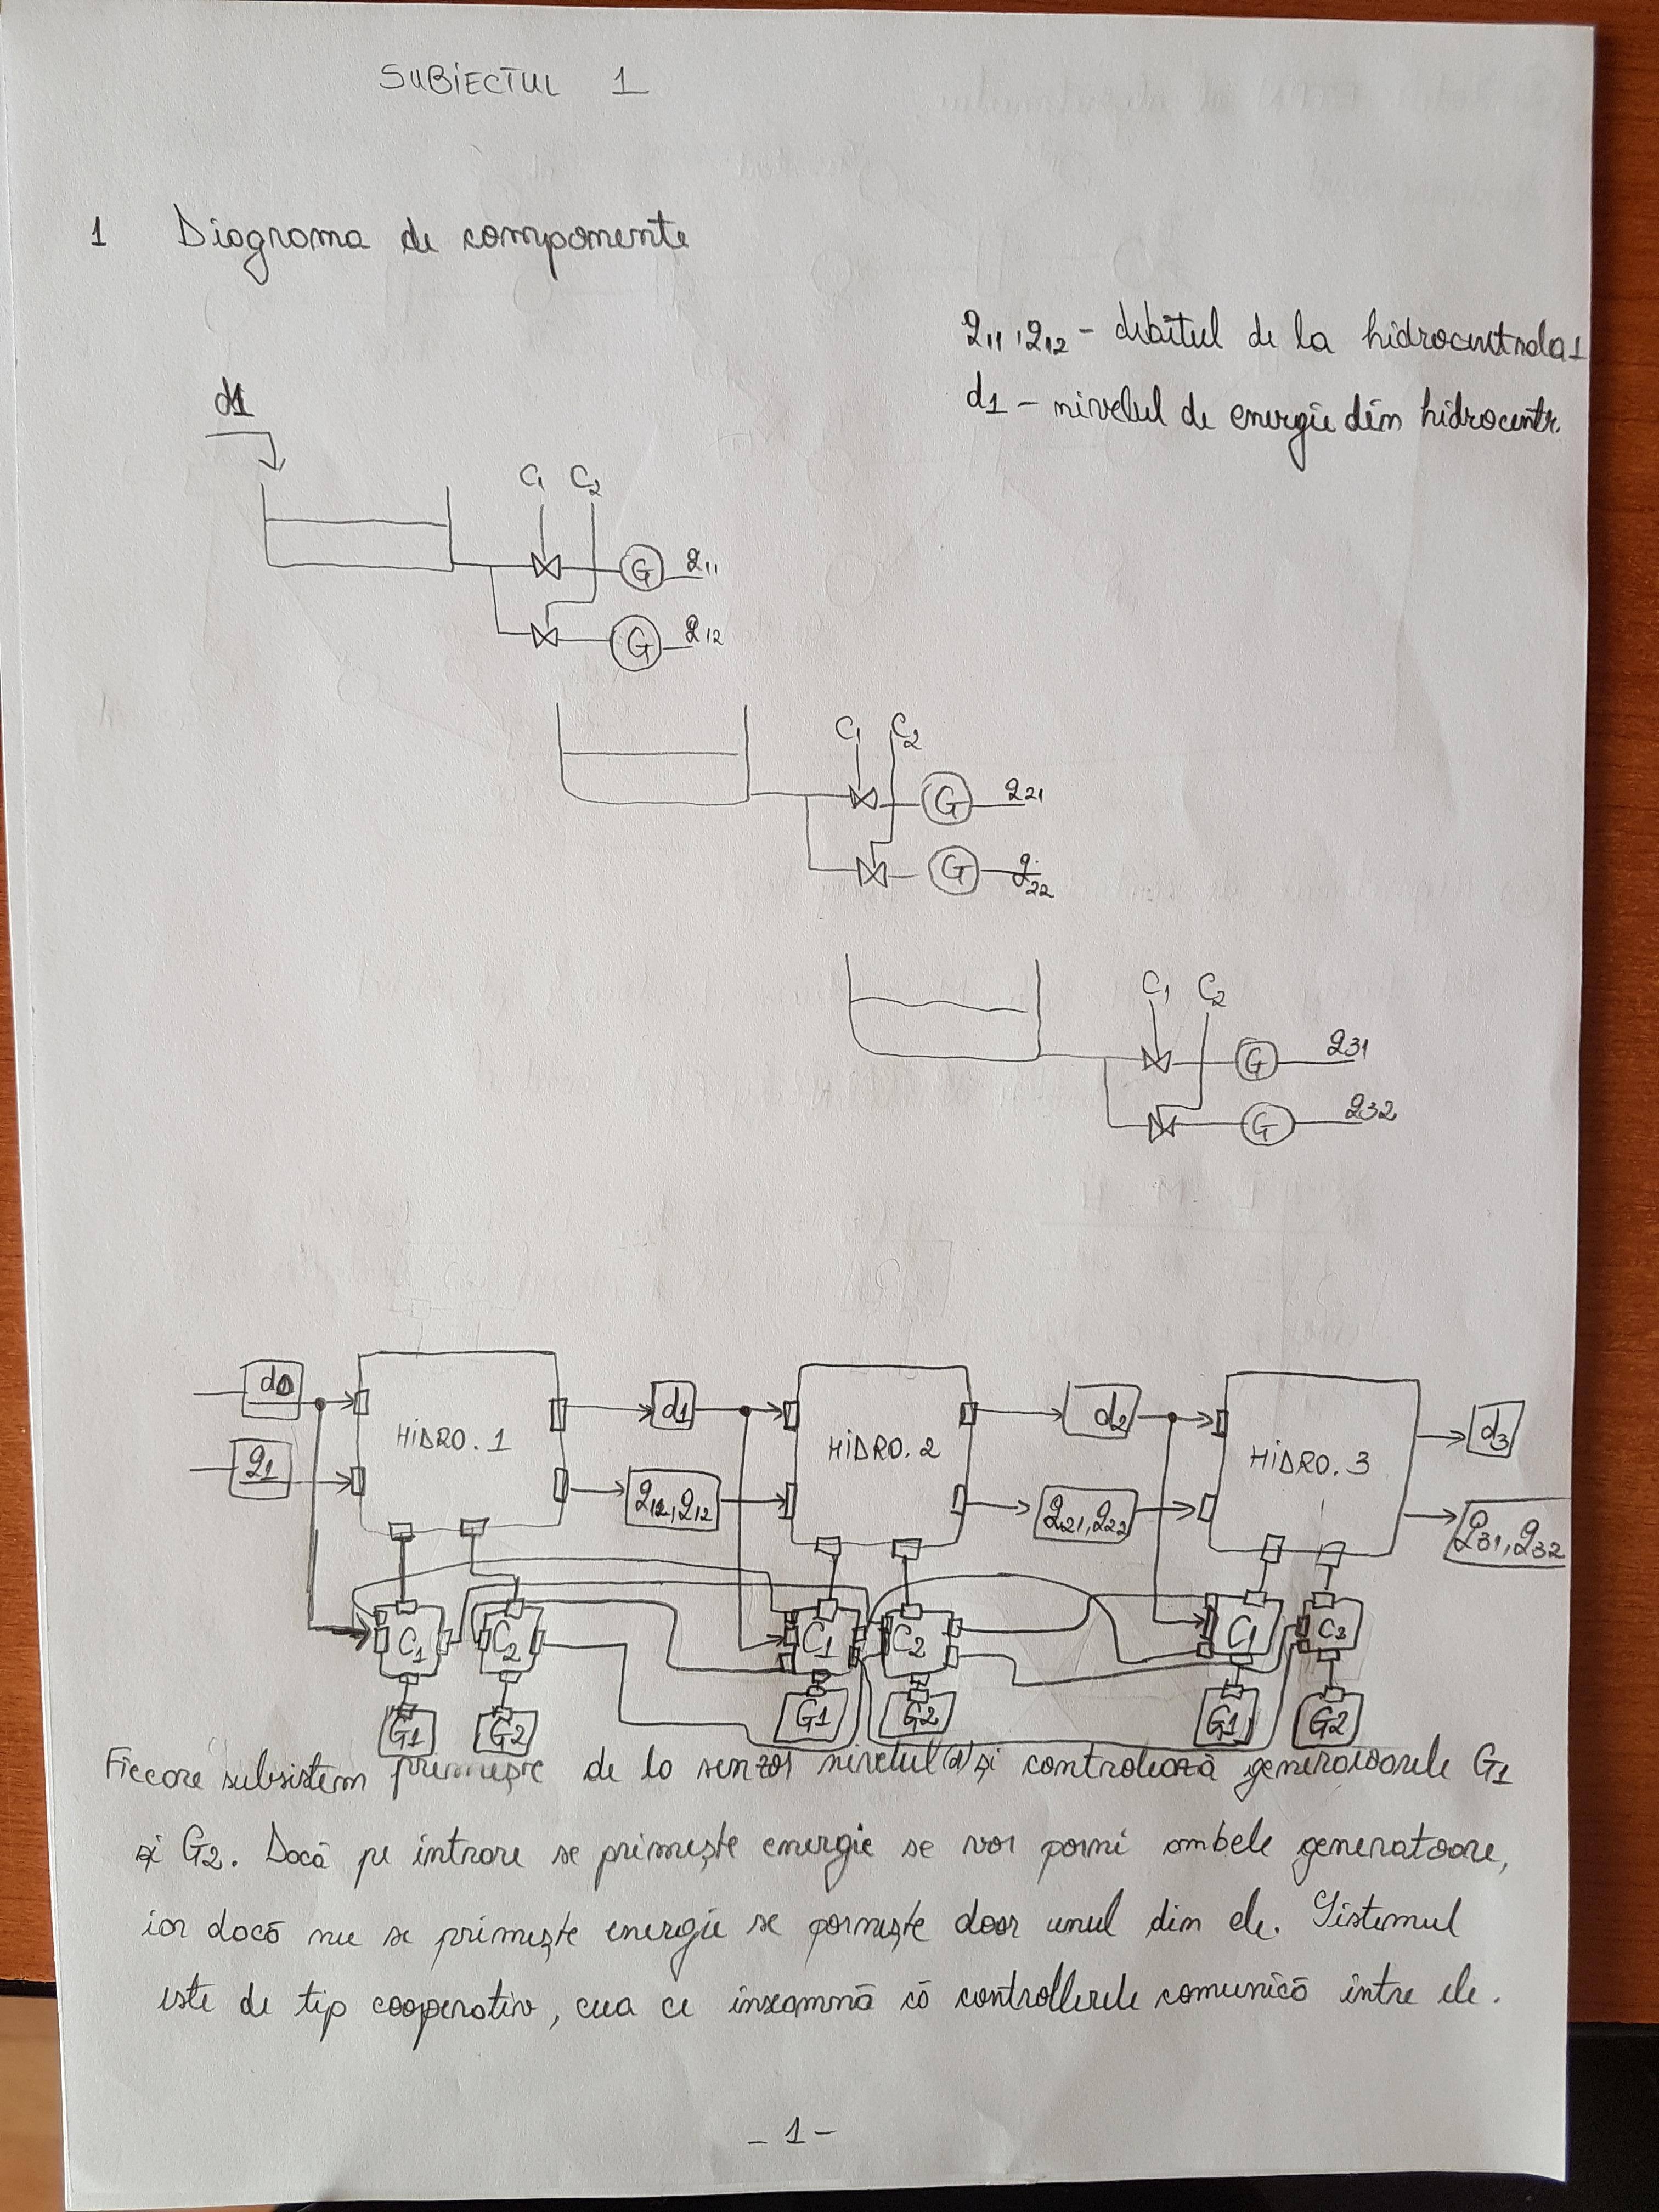 SUBIECTUL 1
1 Diagrama de componente
q11, q12 - debitul de la hidrocentrala 1
d1 - nivelul de energie din hidrocentr.
d1
C1 C2
G q11
G q12
C1 C2
G q21
G q22
C1 C2
G q31
G q32
d0 HIDRO. 1 d1 HIDRO. 2 d2 HIDRO. 3 d3
q1 q12, q12 q21, q22 q31, q32
C1 C2 C1 C2 C1 C2
G1 G2 G1 G2 G1 G2
Fiecare subsistem primește de la senzor nivelul (d) și controlează generatoarele G1
și G2. Dacă pe intrare se primește energie se vor porni ambele generatoare,
iar dacă nu se primește energie se pornește doar unul din ele. Sistemul
este de tip cooperativ, ceea ce înseamnă că controllerele comunică între ele.
- 1 -